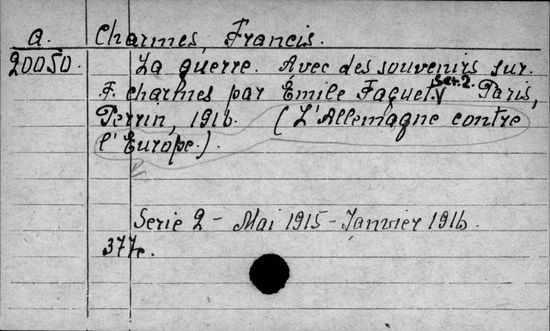 a. Charmes, Francis.
20050. La guerre. Avec des souvenirs sur
F. Charmes par Émile Faguet. Ser. 2. Paris,
Perrin, 1916. (L'Allemagne contre
l'Europe.)
Serie 2 - Mai 1915 - Janvier 1916.
377p.